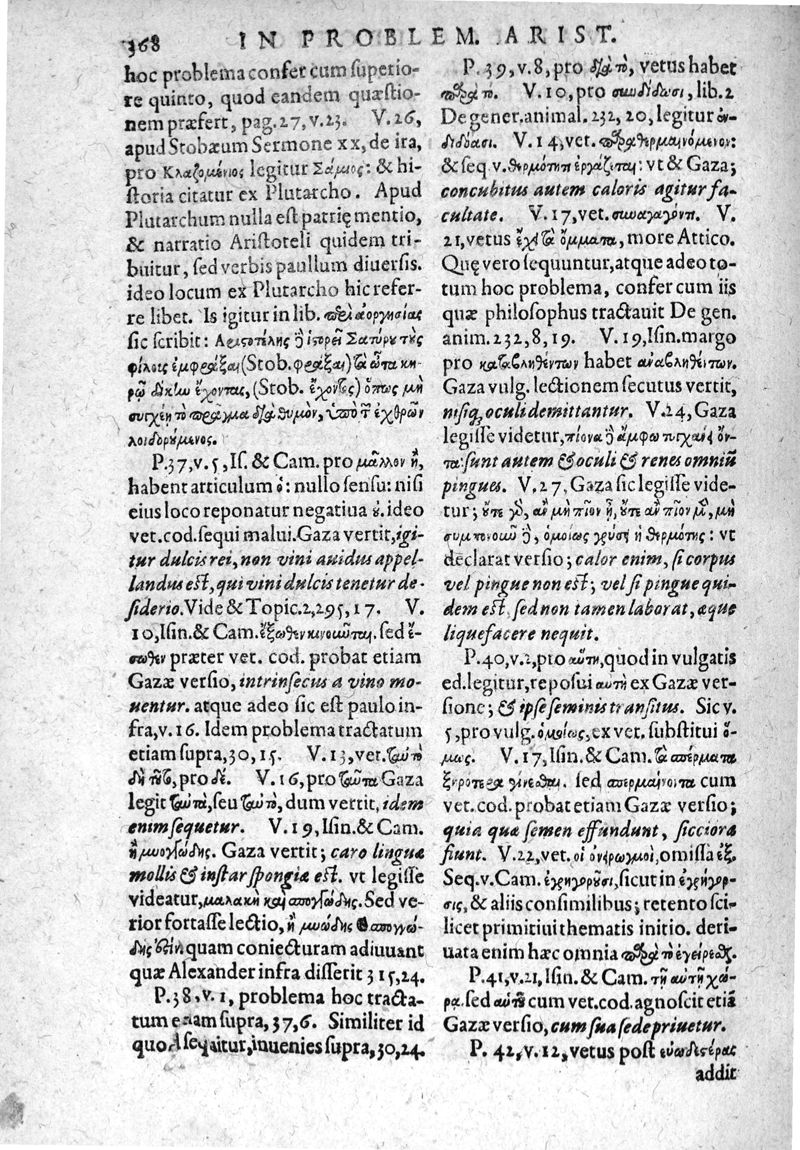 368 IN PROBLEM. ARIST.
hoc problema confer cum superio-
re quinto, quod eandem quæstio-
nem præfert, pag.27, v.23. V.26,
apud Stobæum Sermone xx, de ira,
pro Κλαζομένιος legitur Σάμιος: & hi-
storia citatur ex Plutarcho. Apud
Plutarchum nulla est patrię mentio,
& narratio Aristoteli quidem tri-
buitur, sed verbis paullum diuersis.
ideo locum ex Plutarcho hic refer-
re libet. Is igitur in lib. περὶ ἀοργησίας
sic scribit: Ἀριστοτέλης δὲ ἱστορεῖ Σατύρου τοὺς
φίλους ἐμφράξαι (Stob. φράξαι) τὰ ὦτα κη-
ρῷ δίκην ἔχοντος, (Stob. ἔχοντες) ὅπως μὴ
συγχέῃ τὸ πρᾶγμα διὰ θυμὸν, ὑπὸ τῶν ἐχθρῶν
λοιδορούμενος.
P.37, v.5, Is. & Cam. pro μᾶλλον ἢ,
habent articulum ὁ: nullo sensu: nisi
eius loco reponatur negatiua οὐ. ideo
vet. cod. sequi malui. Gaza vertit, igi-
tur dulcis rei, non vini auidus appel-
landus est, qui vini dulcis tenetur de-
siderio. Vide & Topic.2,295,17. V.
10, Isin. & Cam. ἔξωθεν κινοῦνται. sed ἔ-
σωθεν præter vet. cod. probat etiam
Gazæ versio, intrinsecus a vino mo-
uentur. atque adeo sic est paulo in-
fra, v.16. Idem problema tractatum
etiam supra, 30, 15. V.13, vet. ταὐτὸ
δὴ τοῦτο, pro δέ. V.16, pro ταῦτα Gaza
legit ταὐτὰ, seu ταὐτὸ, dum vertit, idem
enim sequetur. V.19, Isin. & Cam.
ἢ μυογγώδης. Gaza vertit; caro linguæ
mollis & instar spongiæ est. vt legisse
videatur, μαλακὴ καὶ σπογγώδης. Sed ve-
rior fortasse lectio, ἢ μυώδης σπογγώ-
δης ἐστίν: quam coniecturam adiuuant
quæ Alexander infra disserit 315,24.
P.38, v.1, problema hoc tracta-
tum etiam supra, 37,6. Similiter id
quod sequitur, inuenies supra, 30,24.
P. 39, v.8, pro διὰ τὸ, vetus habet
παρὰ τὸ. V.10, pro συνδίδωσι, lib.2
De gener. animal. 232, 20, legitur ἐν-
διδόασι. V.14, vet. παραθερμαινόμενον:
& seq. v. θερμότητι ἐργάζεται: vt & Gaza;
concubitus autem caloris agitur fa-
cultate. V.17, vet. συναγαγόντι. V.
21, vetus ἔχει τὰ ὄμματα, more Attico.
Quę vero sequuntur, atque adeo to-
tum hoc problema, confer cum iis
quæ philosophus tractauit De gen.
anim. 232, 8, 19. V.19, Isin. margo
pro καταβληθέντων habet ἀναβληθέντων.
Gaza vulg. lectionem secutus vertit,
nisiq; oculi demittantur. V.24, Gaza
legisse videtur, πίονα δὲ ἄμφω τυγχάνει ὄν-
τα: sunt autem & oculi & renes omniū
pingues. V.27, Gaza sic legisse vide-
tur; οὔτε γὰρ, ἂν μὴ πῖον ᾖ, οὔτε ἂν πῖον μὲν, μὴ
συμπονοῦν δὲ, ὁμοίως χρώση ἡ θερμότης: vt
declarat versio; calor enim, si corpus
vel pingue non est; vel si pingue qui-
dem est, sed non tamen laborat, æque
liquefacere nequit.
P.40, v.2, pro αὕτη, quod in vulgatis
ed. legitur, reposui αὐτὴ ex Gazæ ver-
sione; & ipse seminis transitus. Sic v.
5, pro vulg. ὁμοίως, ex vet. substitui ὅ-
μως. V.17, Isin. & Cam. τὰ σπέρματα
ξηρότερα γίνεσθαι. sed σπερμαίνοντα cum
vet. cod. probat etiam Gazæ versio;
quia quæ semen effundunt, sicciora
fiunt. V.22, vet. οἱ ὀνειρωγμοὶ, omissa ἐξ.
Seq. v. Cam. ἐγρηγοροῦσι, sicut in ἐγρήγορ-
σις, & aliis consimilibus; retento sci-
licet primitiui thematis initio. deri-
uata enim hæc omnia παρὰ τὸ ἐγείρεσθαι.
P.41, v.21, Isin. & Cam. τῇ αὐτῇ χώ-
ρᾳ. sed αὐτοῦ cum vet. cod. agnoscit etiā
Gazæ versio, cum sua sede priuetur.
P. 42, v.12, vetus post εὐωδεστέρας
addit